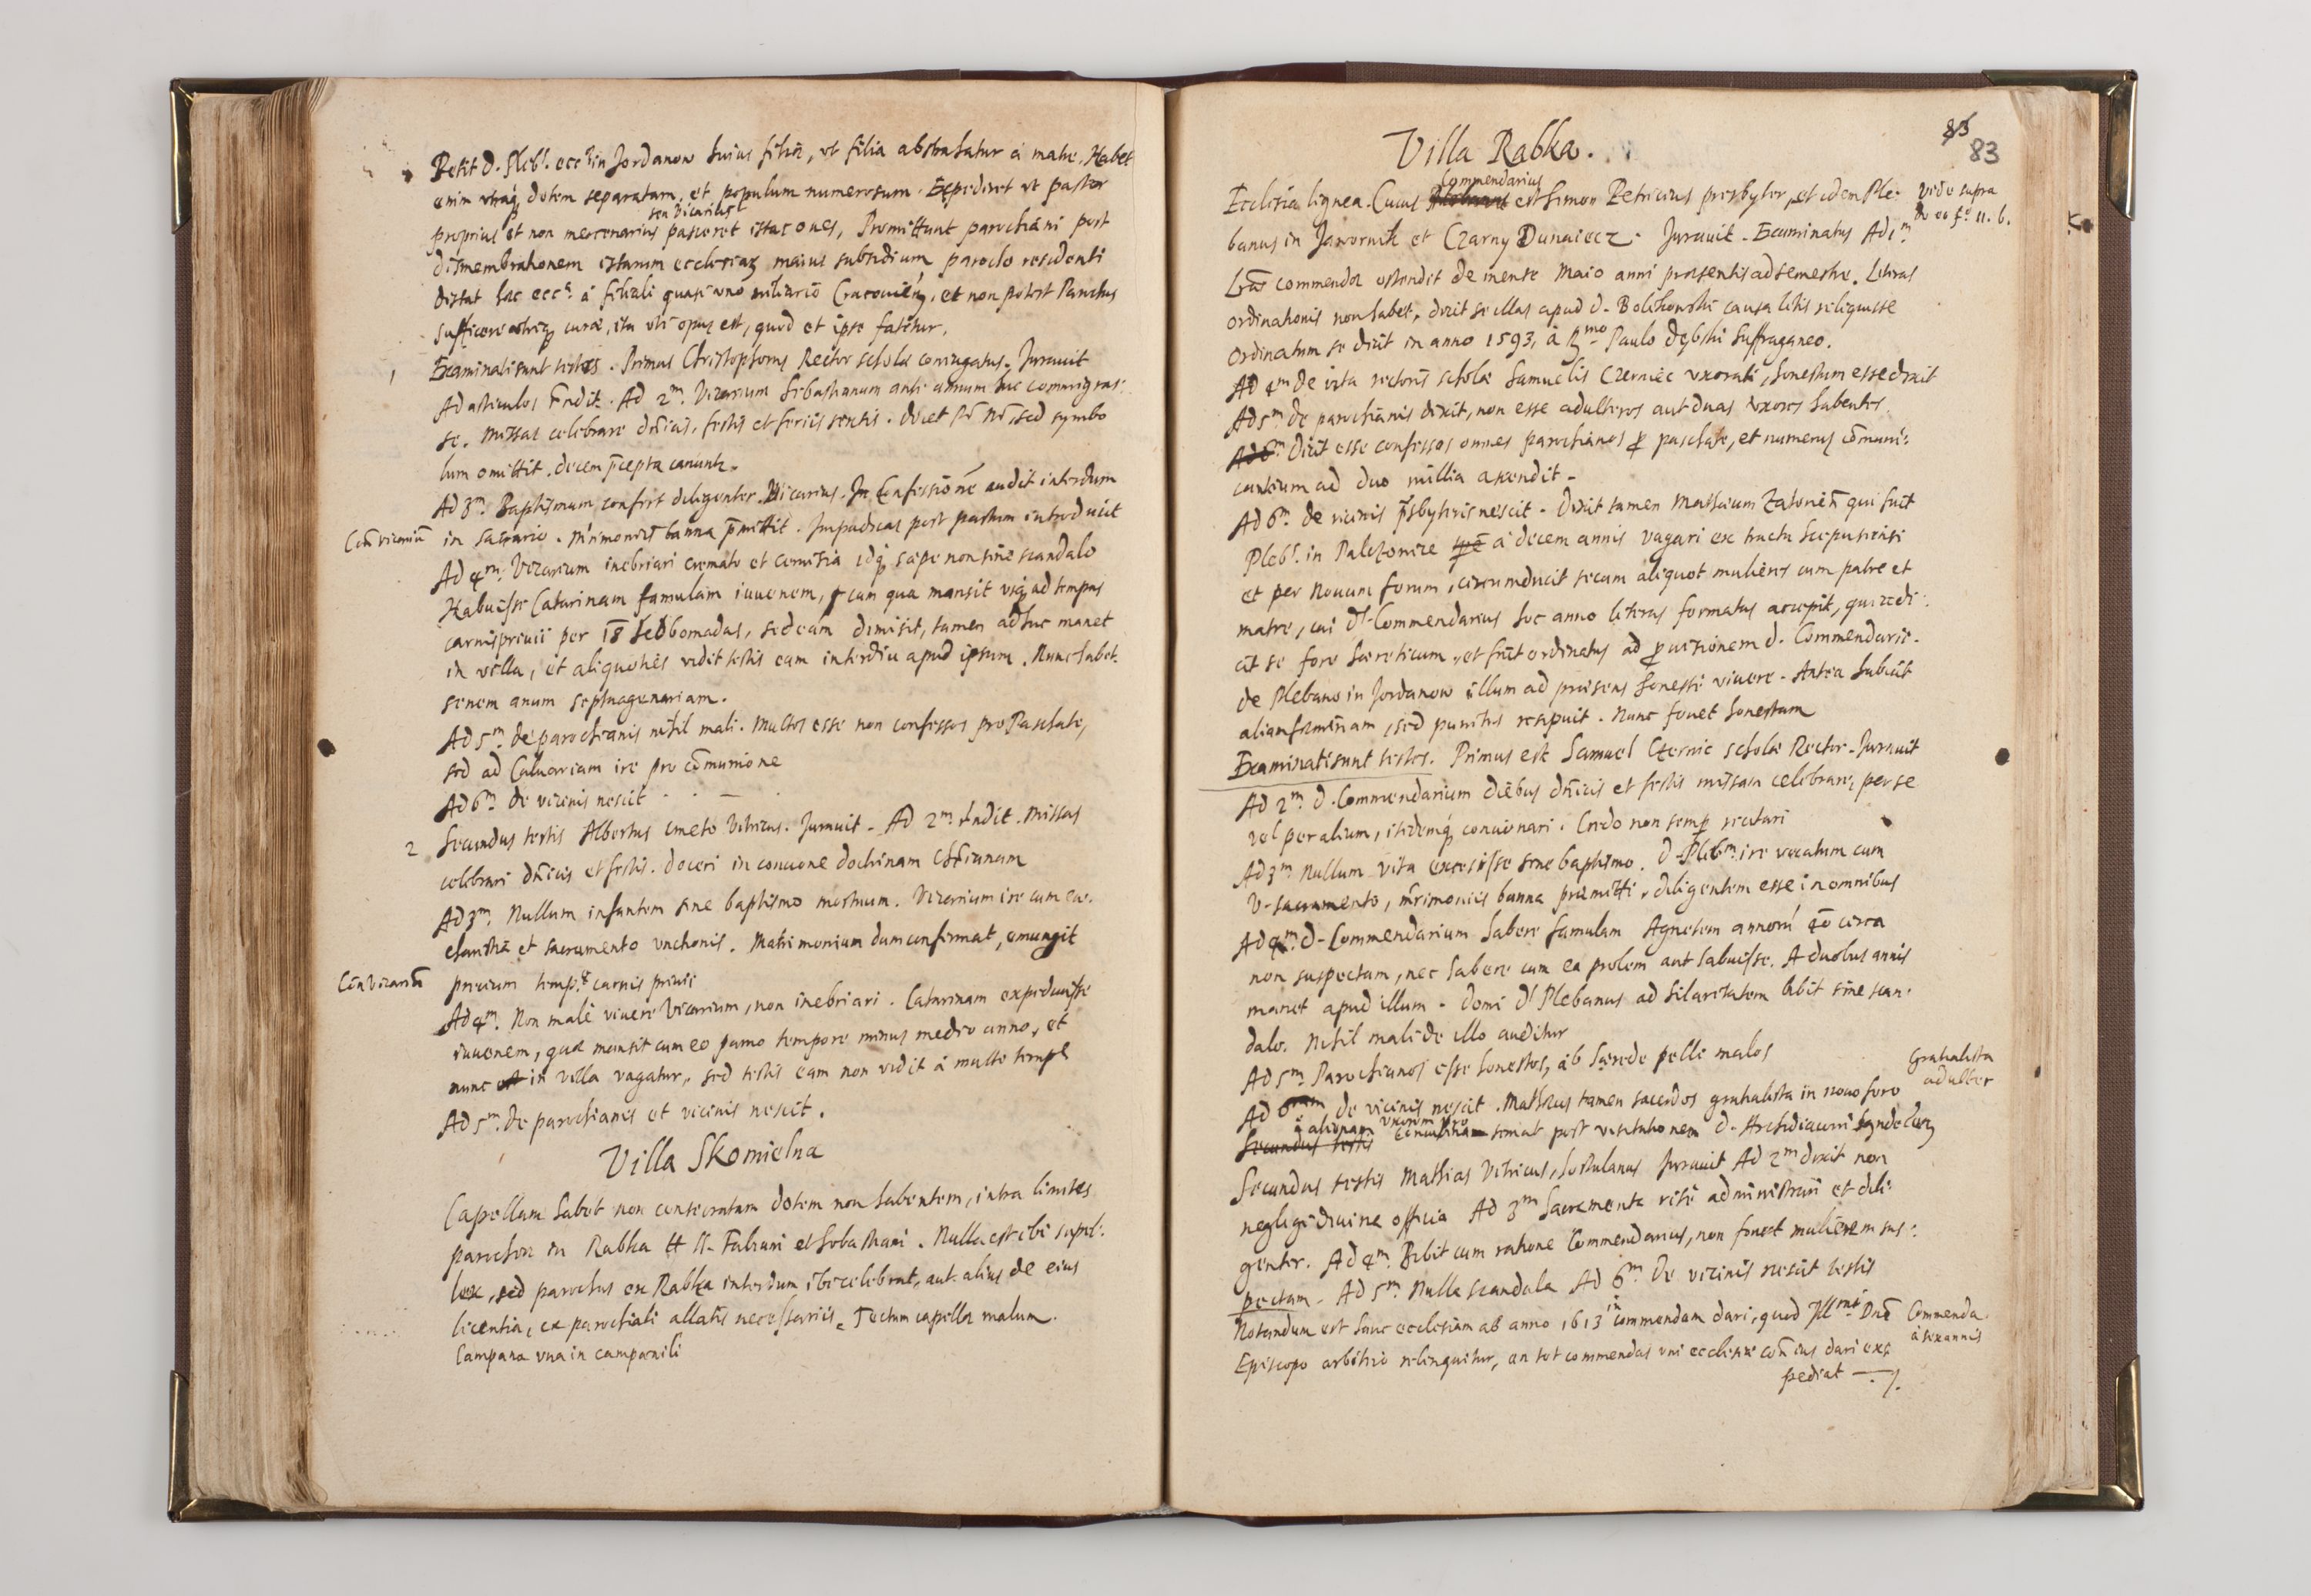 Petit d. Pleb. eccl. in Jordanow huius filiæ, ut filia abstrahatur à matre. Habet
enim utraq; dotem separatam, et populum numerosum. Expediret ut pastor
proprius et non mercenarius seu Vicarius pasceret istas oves, Promittunt parochiani post
dismembrationem istarum ecclesiaꝝ maius subsidium parocho residenti
distat hæc eccl. à filiali quasi uno miliario Cracovien, et non potest Parochus
sufficere utriq; curæ, ita uti opus est, quod et ipse fatetur.
1 Examinati sunt testes. Primus Christophorus Rector scholæ coniugatus. Juravit
Ad articulos rñdit. Ad 2m Vicarium Sebastianum ante annum huc commigras-
se. Missas celebrare dñicis, festis et feriis sextis. docet Pr. Nr. sed symbo
lum omittit. decem p̄cepta canunt.
Ad 3m Baptismum confert diligenter Vicarius. In Confessione audit interdum
Con. vicarium in sacrario. Mr̄imoniis banna p̄mittit. Impudicas post partum introducit
Ad 4m. Vicarium inebriari cremato et cervisia idq; sæpe non sine scandalo
Habuisse Catarinam famulam iuvenem, cum qua mansit usq; ad tempus
carnisprivii per 18 hebdomadas, sed eam dimisit, tamen adhuc manet
in villa, et aliquoties vidit testis eam interdiu apud ipsum. Nunc habet
senem anum septuagenariam.
Ad 5m. de parochianis nihil mali. Multos esse non confessos pro Paschate,
sed ad Calvariam ire pro cōmunione
Ad 6m de vicinis nescit
2 Secundus testis Albertus cmeto Vitricus. Juravit. Ad 2m rñdit. Missas
celebrari dñicis et festis. doceri in concione doctrinam Chr̄ianam
Ad 3m. Nullum infantem sine baptismo mortuum. Vicarium ire cum eu-
charistia et sacramento unctionis. Matrimonium dum confirmat, emungit
Con Vicarium precium temp. carnis privii
Ad 4m. Non male vivere Vicarium, non inebriari. Catarinam expedivisse
iuvenem, quæ mansit cum eo primo tempore minus medio anno, et
nunc in villa vagatur, sed testis eam non vidit à multo temp.
Ad 5m. de parochianis et vicinis nescit.
Villa Skomielna
Capellam habet non consecratam dotem non habentem, intra limites
parochiæ in Rabka tt. SS. Fabiani et Sebastiani. Nulla est ibi supel-
lex, sed parochus ex Rabka interdum ibi celebrat, aut alius de eius
licentia, ex parochiali allatis necessariis. Tectum capellæ malum.
Campana una in campanili
83
Villa Rabka.
Ecclesia lignea. Cuius Commendarius est Simon Petricius presbyter, et idem Ple- Vide supra
banus in Jawornik et Czarny Dunaiecz. Juravit. Examinatus Ad 1m de eo fo. 11. b.
Lr̄as commendæ ostendit de mense Maio anni præsentis ad semestre. Literas
ordinationis non habet, dicit se illas apud d. Bolechowski causa litis reliquisse
Ordinatum se dicit in anno 1593. à Rmo Paulo Dębski Suffraganeo.
Ad 4m de vita rectoris scholæ Samuelis Czerniec uxorati, honestum esse dixit
Ad 5m de parochianis dixit, non esse adulteros aut duas uxores habentes.
Ad 6m Dicit esse confessos omnes parochianos p paschate, et numerus cōmuni-
cantium ad duo millia ascendit.
Ad 6m de vicinis p̄sbyteris nescit. Dixit tamen Mathæum Zatorien qui fuit
Pleb. in Paltzowice à decem annis vagari ex tractu Scepusiensi
et per Novum forum, circumducit secum aliquot mulieres cum patre et
matre, cui d. Commendarius hoc anno literas formatas accepit, qui redi-
cit se fore hæreticum, et fuit ordinatus ad provisionem d. Commendarii.
de Plebano in Jordanow illum ad præsens honeste vivere. Antea habuit
aliam fæminam, sed punitus resipuit. Nunc fovet honestam
Examinati sunt testes. Primus est Samuel Czernic scholæ Rector. Juravit
Ad 2m. d. Commendarium diebus dñicis et festis missam celebrare, per se
vel per alium, itidemq; concionari. Credo non semp recitari
Ad 3m Nullum vita excessisse sine baptismo. d. Plebm. ire vocatum cum
V. sacramento, mr̄imoniis banna præmitti. diligentem esse in omnibus
Ad 4m. d. Commendarium habere famulam Agnetem annorū 40 circa
non suspectam, nec habere cum ea prolem aut habuisse. A duobus annis
manet apud illum. Domi d. Plebanus ad hilaritatem bibit sine scan-
dalo. Nihil mali de illo auditur
Ad 5m Parochianos esse honestos, ab hærede pelli malos
Ad 6tam de vicinis nescit. Mathæus tamen sacerdos gratialista in novo foro Gratialista adulter
Secundus testis alienam uxorem pro concubina tenuit post visitationem d. Archidiaconi Sandecen
Secundus testis Mathias Vitricus, hortulanus Juravit Ad 2m dixit non
negligi divina officia Ad 3m Sacramenta rite administrari et dili-
genter. Ad 4m. Bibit cum ratione Commendarius, non fovet mulierem sus-
pectam. Ad 5m Nulla scandala Ad 6m. De vicinis nescit testis
Notandum est hanc ecclesiam ab anno 1613 in commendam dari, quod Illmi Dni Commenda
Episcopo arbitrio relinquitur, an tot commendas uni ecclesiæ con. ius dari ex- à sex annis
pediat